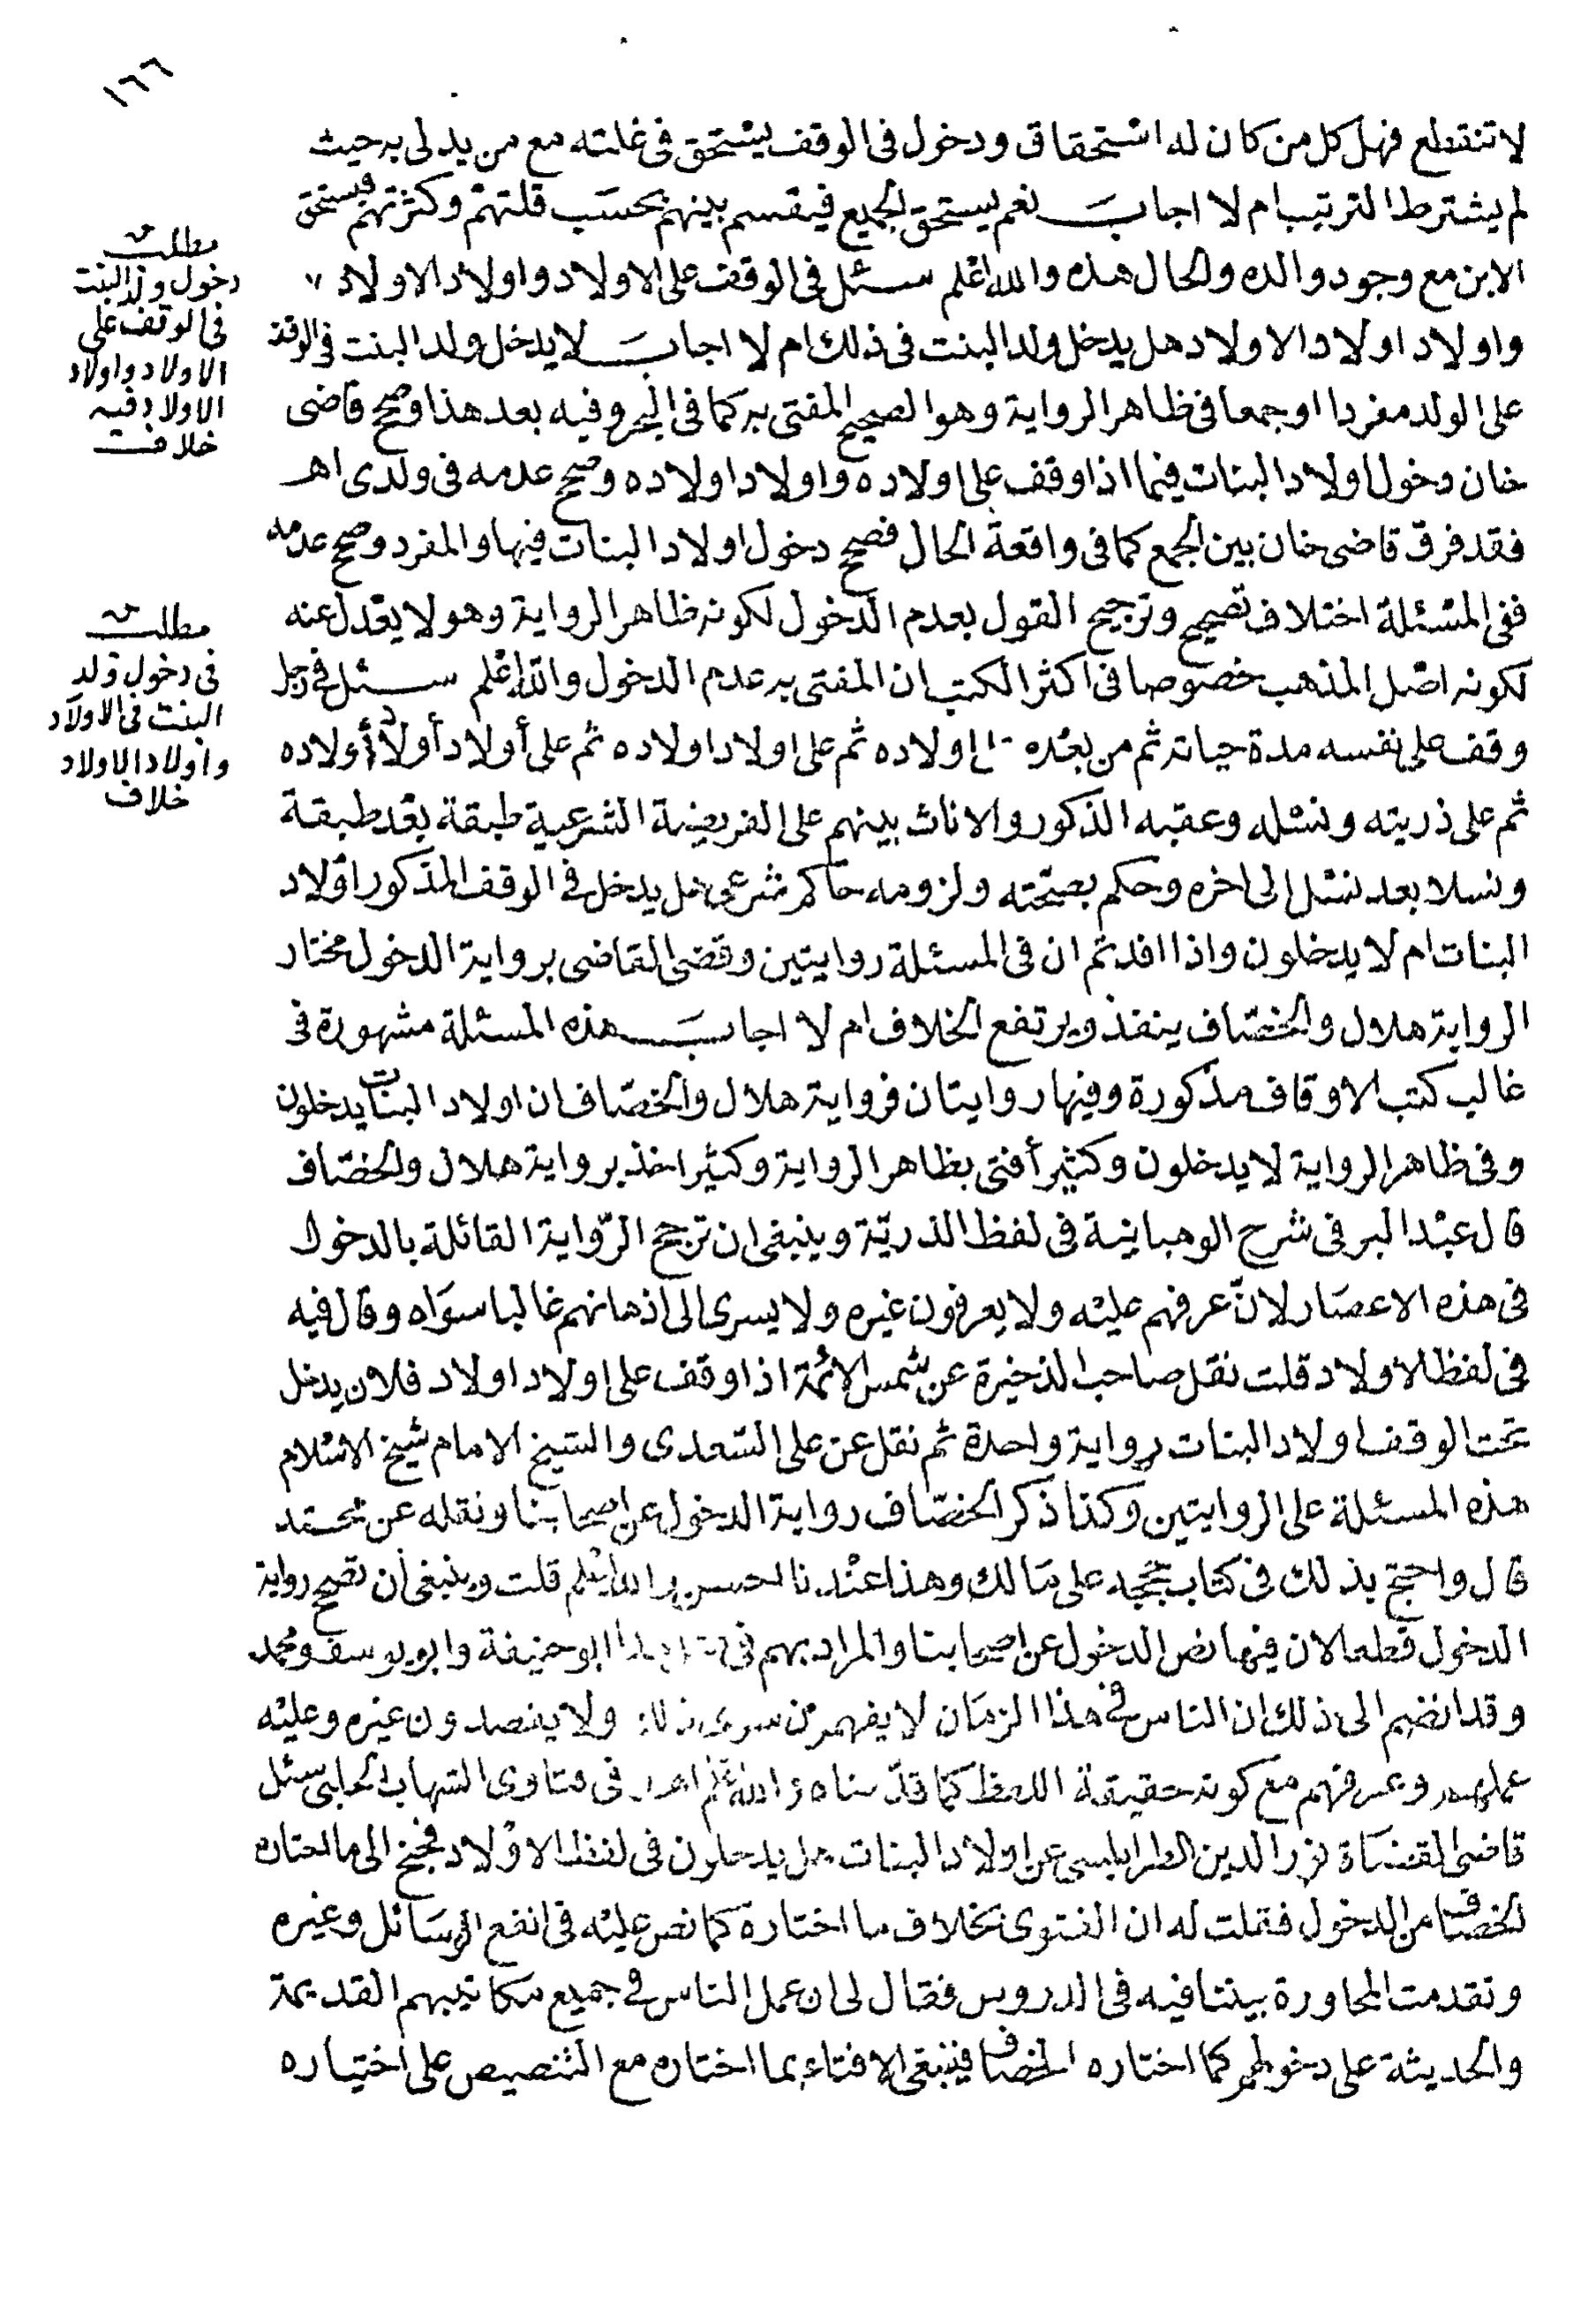 ١٦٦
لا تنقطع فهل كل من كان له استحقاق ودخول فى الوقف يستحق فى غلته مع من يدلى به حيث
لم يشترط الترتيب ام لا اجاب نعم يستحق الجميع فيقسم بينهم بحسب قلتهم وكثرتهم فيستحق
الابن مع وجود والده والحال هذه والله اعلم سئل فى الوقف على الاولاد واولاد الاولاد
واولاد اولاد الاولاد هل يدخل ولد البنت فى ذلك ام لا اجاب لا يدخل ولد البنت فى الوقف
على الولد مفردا او جمعا فى ظاهر الرواية وهو الصحيح المفتى به كما فى البحر وفيه بعد هذا وصحح قاضى
خان دخول اولاد البنات فيما اذا وقف على اولاده واولاد اولاده وصحح عدمه فى ولدى اهـ
فقد فرق قاضى خان بين الجمع كما فى واقعة الحال فصحح دخول اولاد البنات فيها والمفرد وصحح عدمه
ففى المسئلة اختلاف تصحيح وترجيح القول بعدم الدخول لكونه ظاهر الرواية وهو لا يعدل عنه
لكونه اصل المذهب خصوصا فى اكثر الكتب ان المفتى به عدم الدخول والله اعلم سئل فى رجل
وقف على نفسه مدة حياته ثم من بعده اولاده ثم على اولاد اولاده ثم على أولاد أولاد أولاده
ثم على ذريته ونسله وعقبه الذكور والاناث بينهم على الفريضة الشرعية طبقة بعد طبقة
ونسلا بعد نسل الى اخره وحكم بصحته ولزومه حاكم شرعى هل يدخل فى الوقف المذكور اولاد
البنات ام لا يدخلون واذا افدتم ان فى المسئلة روايتين وقضى القاضى برواية الدخول مختار
الرواية هلال والخصاف ينفذ ويرتفع الخلاف ام لا اجاب هذه المسئلة مشهورة فى
غالب كتب الاوقاف مذكورة وفيها روايتان فرواية هلال والخصاف ان اولاد البنات يدخلون
وفى ظاهر الرواية لا يدخلون وكثير أفتى بظاهر الرواية وكثير اخذ برواية هلال والخصاف
قال عبد البر فى شرح الوهبانية فى لفظ الذرية وينبغى ان ترجح الرواية القائلة بالدخول
فى هذه الاعصار لان عرفهم عليه ولا يعرفون غيره ولا يسرى الى اذهانهم غالبا سواه وقال فيه
فى لفظ الاولاد قلت نقل صاحب الذخيرة عن شمس الائمة اذا وقف على اولاد اولاد فلان يدخل
تحت الوقف اولاد البنات رواية واحدة ثم نقل عن على السعدى والشيخ الامام شيخ الاسلام
هذه المسئلة على الروايتين وكذا ذكر الخصاف رواية الدخول عن اصحابنا ونقله عن محمد
قال واحتج بذلك فى كتاب حججه على مالك وهذا عندنا الحسن والله اعلم قلت وينبغى أن تصحح رواية
الدخول قطعا لان فيها نص الدخول عن اصحابنا والمراد بهم فى ابو حنيفة وابو يوسف ومحمد
وقد انضم الى ذلك ان الناس فى هذا الزمان لا يفهمون سوى ذلك ولا يقصدون غيره وعليه
عملهم وعرفهم مع كونه حقيقة اللفظ كما قدمناه والله اعلم اهـ فى فتاوى الشهاب الحلبى سئل
قاضى القضاة نور الدين الطرابلسى عن اولاد البنات هل يدخلون فى لفظ الاولاد فجنح الى ما اختاره
الخصاف من الدخول فقلت له ان الفتوى بخلاف ما اختاره كما نص عليه فى انفع الوسائل وغيره
وتقدمت المحاورة بيننا فيه فى الدروس فقال لى ان عمل الناس فى جميع مكاتيبهم القديمة
والحديثة على دخولهم كما اختاره الخصاف فينبغى الافتاء بما اختاره مع التنصيص على اختياره
مطلب
دخول ولد البنت
فى الوقف على
الاولاد واولاد
الاولاد فيه
خلاف
مطلب
فى دخول ولد
البنت فى الاولاد
واولاد الاولاد
خلاف